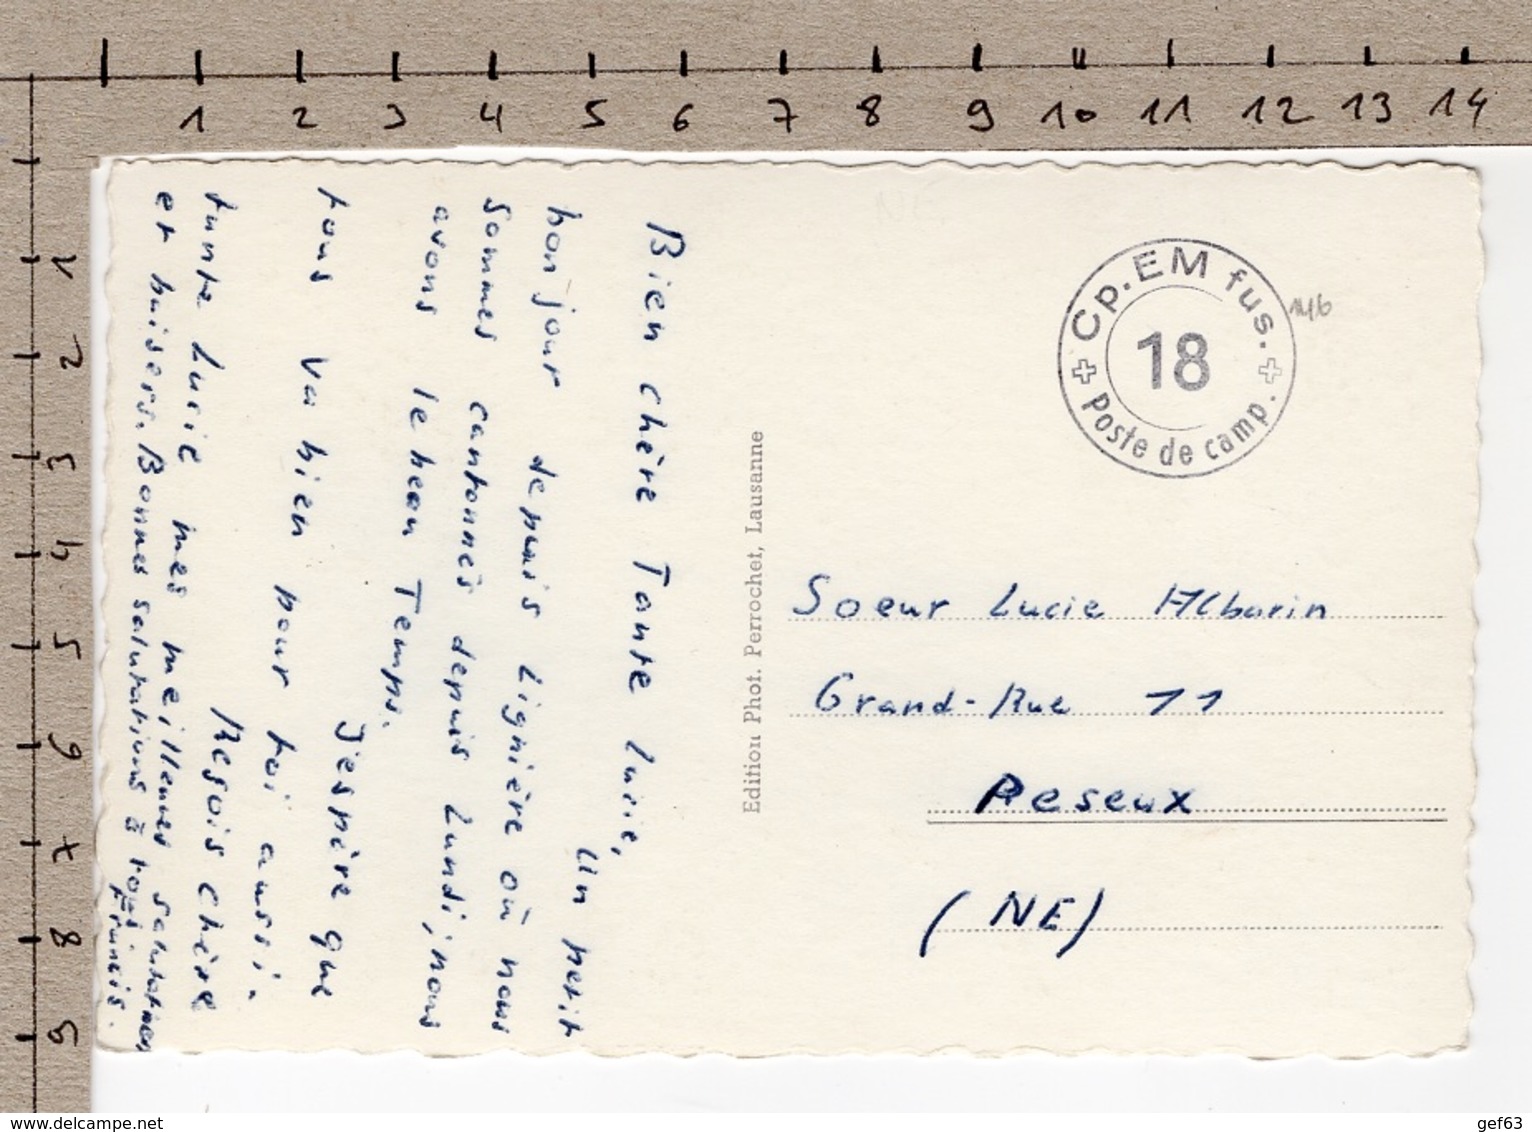 1 2 3 4 5 6 7 8 9 10 11 12 13 14
1
2
3
4
5
6
7
8
9
Bien chère Tante Lucie,
Un petit
bonjour depuis Lignière où nous
sommes cantonnés depuis Lundi, nous
avons le beau Temps.
J'espère que
tous va bien pour toi aussi.
Resois chère
tante Lucie mes meilleures salutations
et baisers. Bonnes salutations à tous
Francis.
Edition Phot. Perrochet, Lausanne
Cp. EM fus.
18
Poste de camp.
146
Soeur Lucie Albarin
Grand-Rue 11
Peseux
(NE)
www.delcampe.net
gef63